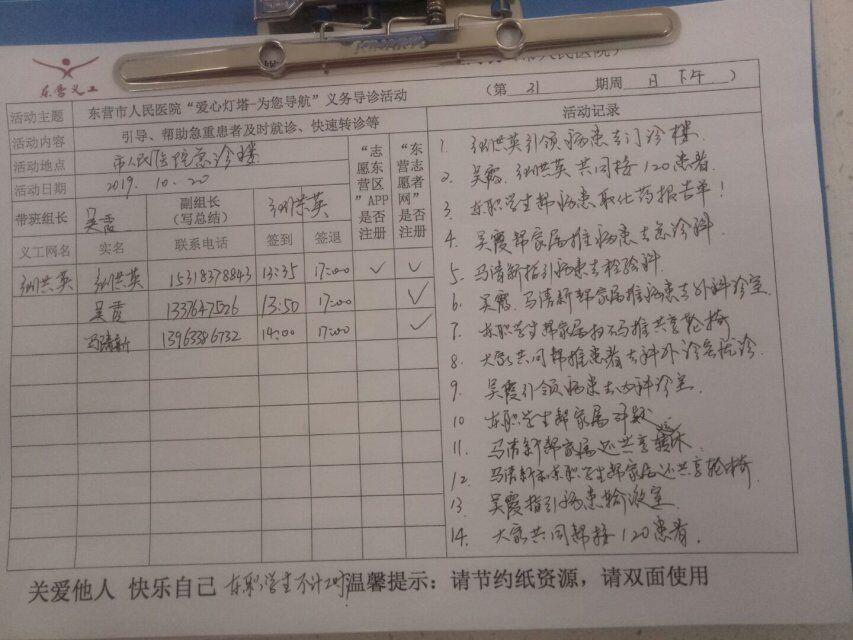 东营义工
市人民医院）
东营市人民医院“爱心灯塔-为您导航”义务导诊活动 （第 31 期周 日下午）
活动主题
活动内容 引导、帮助急重患者及时就诊、快速转诊等
活动地点 市人民医院急诊楼
活动日期 2019.10.20
带班组长 吴霞 副组长（写总结） 张洪英
“志愿东营区”APP是否注册
“东营志愿者网”是否注册
义工网名 实名 联系电话 签到 签退
张洪英 张洪英 15318378843 13:35 17:00 ✓ ✓
吴霞 13:50 17:00 ✓
马清新 13963386732 14:00 17:00 ✓
活动记录
1. 张洪英引领病患去门诊楼.
2. 吴霞、张洪英共同接120患者.
3. 东职学生帮病患取化药报告单！
4. 吴霞帮家属推病患去急诊科.
5. 马清新指引病患去检验科.
6. 吴霞、马清新帮家属推病患去外科诊室.
7. 东职学生帮家属扫码推共享轮椅
8. 大家共同帮推患者去
9. 吴霞引领病患去内科诊室.
10 东职学生帮家属
11. 马清新帮家属还共享
12. 马清新和东职学生帮家属还共享轮椅.
13 吴霞指引病患输液室.
14. 大家共同帮接120患者.
关爱他人 快乐自己 东职学生不计时 温馨提示：请节约纸资源，请双面使用